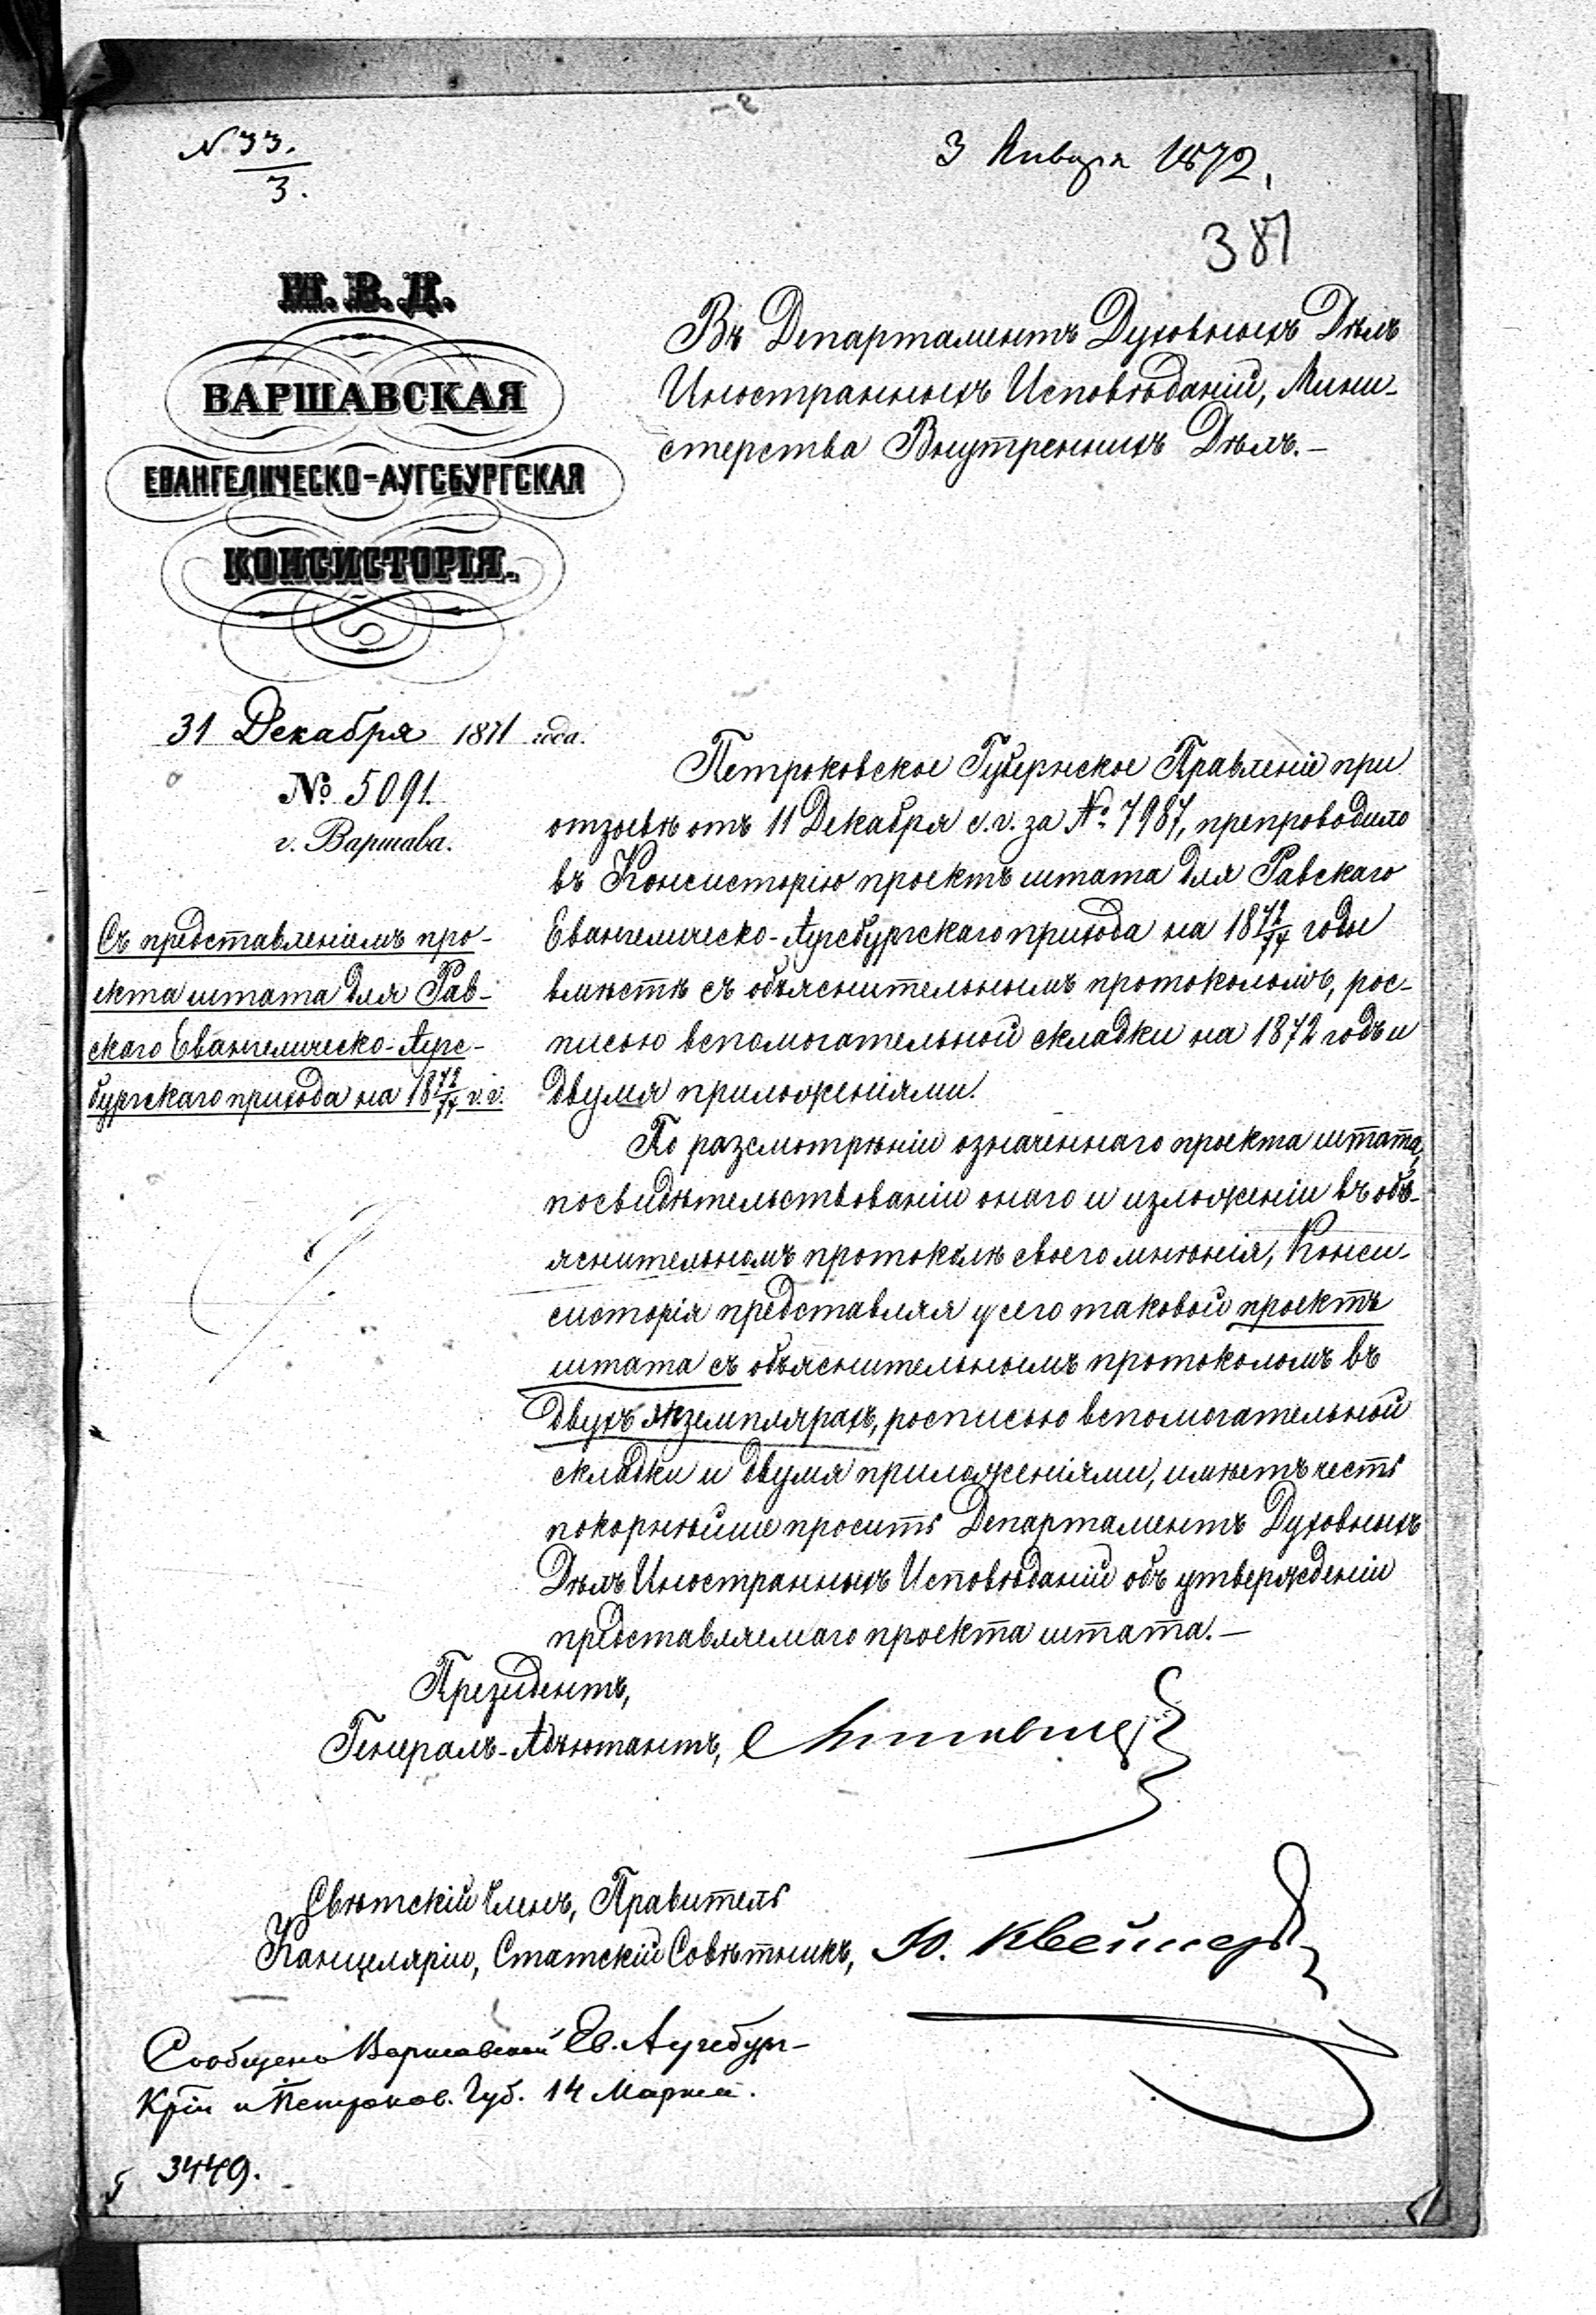 № 33.
3.
3 Января 1872,
381
М. В. Д.
ВАРШАВСКАЯ
ЕВАНГЕЛИЧЕСКО-АУГСБУРГСКАЯ
КОНСИСТОРІЯ.
31 Декабря 1871 года.
№ 5091.
г. Варшава.
Съ представленіемъ про-
екта штата для Рав-
скаго Евангелическо-Аугс-
бургскаго прихода на 1872/77 г.г.
Въ Департаментъ Духовныхъ Дѣлъ
Иностранныхъ Исповѣданій, Мини-
стерства Внутреннихъ Дѣлъ.—
Петроковское Губернское Правленіе при
отзывѣ отъ 11 Декабря с. г. за № 7987, препроводило
въ Консисторію проектъ штата для Равскаго
Евангелическо-Аугсбургскаго прихода на 1872/77 годы
вмѣстѣ съ объяснительнымъ протоколомъ, рос-
писью вспомогательной складки на 1872 годъ и
двумя приложеніями.
По разсмотрѣніи означеннаго проекта штата,
посвидѣтельствованіи онаго и изложеніи въ объ-
яснительномъ протоколѣ своего мнѣнія, Конси-
систорія представляя у сего таковой проектъ
штата съ объяснительнымъ протоколомъ въ
двухъ экземплярахъ, росписью вспомогательной
складки и двумя приложеніями, имѣетъ честь
покорнѣйше просить Департаментъ Духовныхъ
Дѣлъ Иностранныхъ Исповѣданій объ утвержденіи
представляемаго проекта штата.—
Президентъ,
Генералъ-Адъютантъ,
Свѣтскій Членъ, Правитель
Канцеляріи, Статскій Совѣтникъ,
Сообщено Варшавской Ев. Аугсбург-
К͞ріи и Петроков. Губ. 14 Марта.
3449.